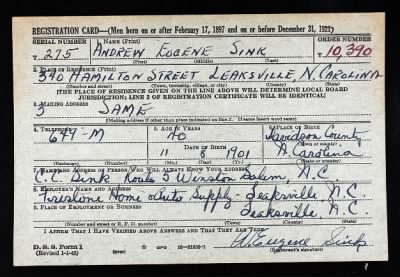 REGISTRATION CARD—(Men born on or after February 17, 1897 and on or before December 31, 1921)
SERIAL NUMBER 1. NAME (Print) ORDER NUMBER
T 275 ANDREW EUGENE SINK T 10,390
(First) (Middle) (Last)
2. PLACE OF RESIDENCE (Print)
340 HAMILTON STREET LEAKSVILLE, N. CAROLINA
(Number and street) (Town, township, village, or city) (County) (State)
[THE PLACE OF RESIDENCE GIVEN ON THE LINE ABOVE WILL DETERMINE LOCAL BOARD
JURISDICTION; LINE 2 OF REGISTRATION CERTIFICATE WILL BE IDENTICAL]
3. MAILING ADDRESS
SAME
[Mailing address if other than place indicated on line 2. If same insert word same]
4. TELEPHONE 5. AGE IN YEARS 6. PLACE OF BIRTH
649-M 40 Davidson County
DATE OF BIRTH
11 8 1901 N. Carolina
7. NAME AND ADDRESS OF PERSON WHO WILL ALWAYS KNOW YOUR ADDRESS
C. C. Sink, Route 5 Winston Salem, N.C.
8. EMPLOYER'S NAME AND ADDRESS
Firestone Home & Auto Supply - Leaksville N.C.
9. PLACE OF EMPLOYMENT OR BUSINESS
Leaksville, N.C.
(Number and street or R. F. D. number) (Town) (County) (State)
I AFFIRM THAT I HAVE VERIFIED ABOVE ANSWERS AND THAT THEY ARE TRUE.
D. S. S. Form 1
(Revised 1-1-42) (over) 16-21630-1
A. Eugene Sink
(Registrant's signature)